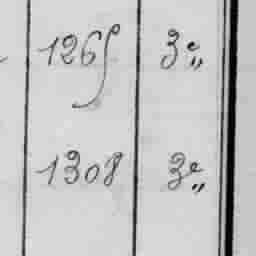 1265 3e„
1308 3e„